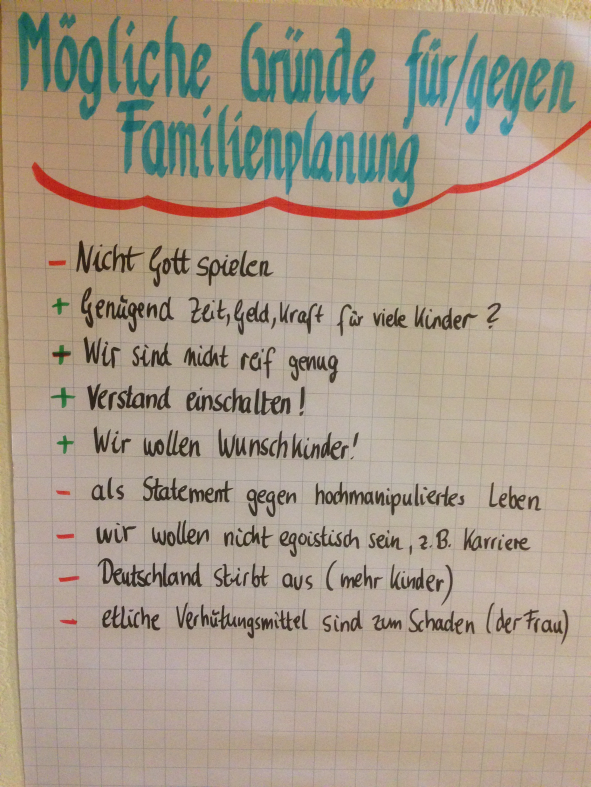 Mögliche Gründe für/gegen
Familienplanung
- Nicht Gott spielen
+ Genügend Zeit, Geld, Kraft für viele Kinder?
+ Wir sind nicht reif genug
+ Verstand einschalten!
+ Wir wollen Wunschkinder!
- als Statement gegen hochmanipuliertes Leben
- wir wollen nicht egoistisch sein, z.B. Karriere
- Deutschland stirbt aus (mehr Kinder)
- etliche Verhütungsmittel sind zum Schaden (der Frau)